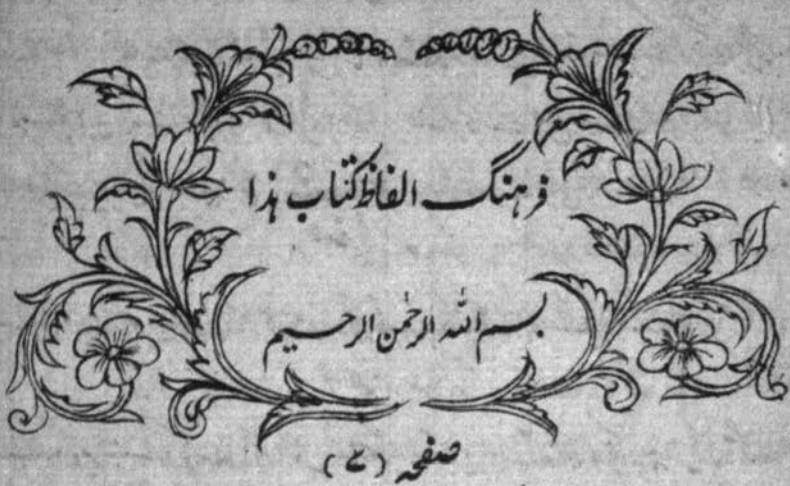 فرہنگ الفاظ کتاب ہذا
بسم اللہ الرحمٰن الرحیم
صفحہ (۷)